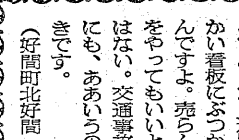 かい看板にぶつか
んですよ。売らん
をやってもいいと
はない。交通事故
にも、ああいう
きです。
（好間町北好間